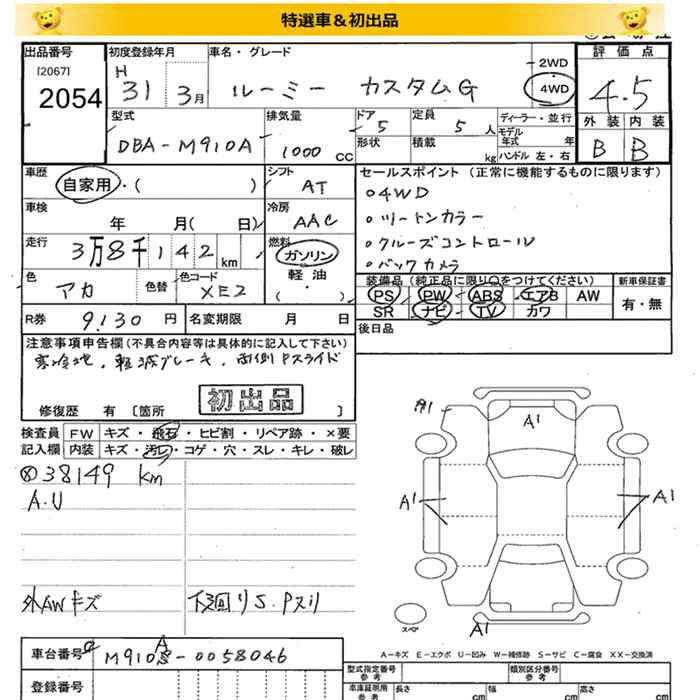 特選車＆初出品
出品番号 [2067] 2054
初度登録年月 H 31 3月
車名・グレード ルーミー カスタムG
2WD 4WD
評価点 4.5
外装 B 内装 B
型式 DBA-M910A
排気量 1000 cc
ドア 5
形状
定員 5 人
積載 kg
ディーラー・並行
モデル年式 年
ハンドル 左・右
車歴 自家用・( )
シフト AT
セールスポイント (正常に機能するものに限ります)
○4WD
○ツートンカラー
○クルーズコントロール
○バックカメラ
車検 年 月( 日)
冷房 AAC
走行 3万8千142 km
燃料 ガソリン 軽油・( )
色 アカ 色替 色コード XE2
装備品 (純正品に限り○をつけてください)
PS PW ABS エアB AW
SR ナビ TV カワ
新車保証書 有・無
R券 9,130 円
名変期限 月 日
後日品
注意事項申告欄 (不具合内容等は具体的に記入して下さい)
寒冷地、軽減ブレーキ、両側Pスライド
初出品
修復歴 有 [箇所 ]
検査員記入欄
FW キズ・飛石・ヒビ割・リペア跡・×要
内装 キズ・汚レ・コゲ・穴・スレ・キレ・破レ
38149 km
A.U
外AWキズ 下廻りS.Pスリ
A1
A1
A1
A1
A1
スペア
A-キズ E-エクボ U-凹み W-補修跡 S-サビ C-腐食 XX-交換済
車台番号 M910A-0058046
登録番号
型式指定番号 参考
類別区分番号 参考
車庫証明用 参考 長さ cm 幅 cm 高さ cm